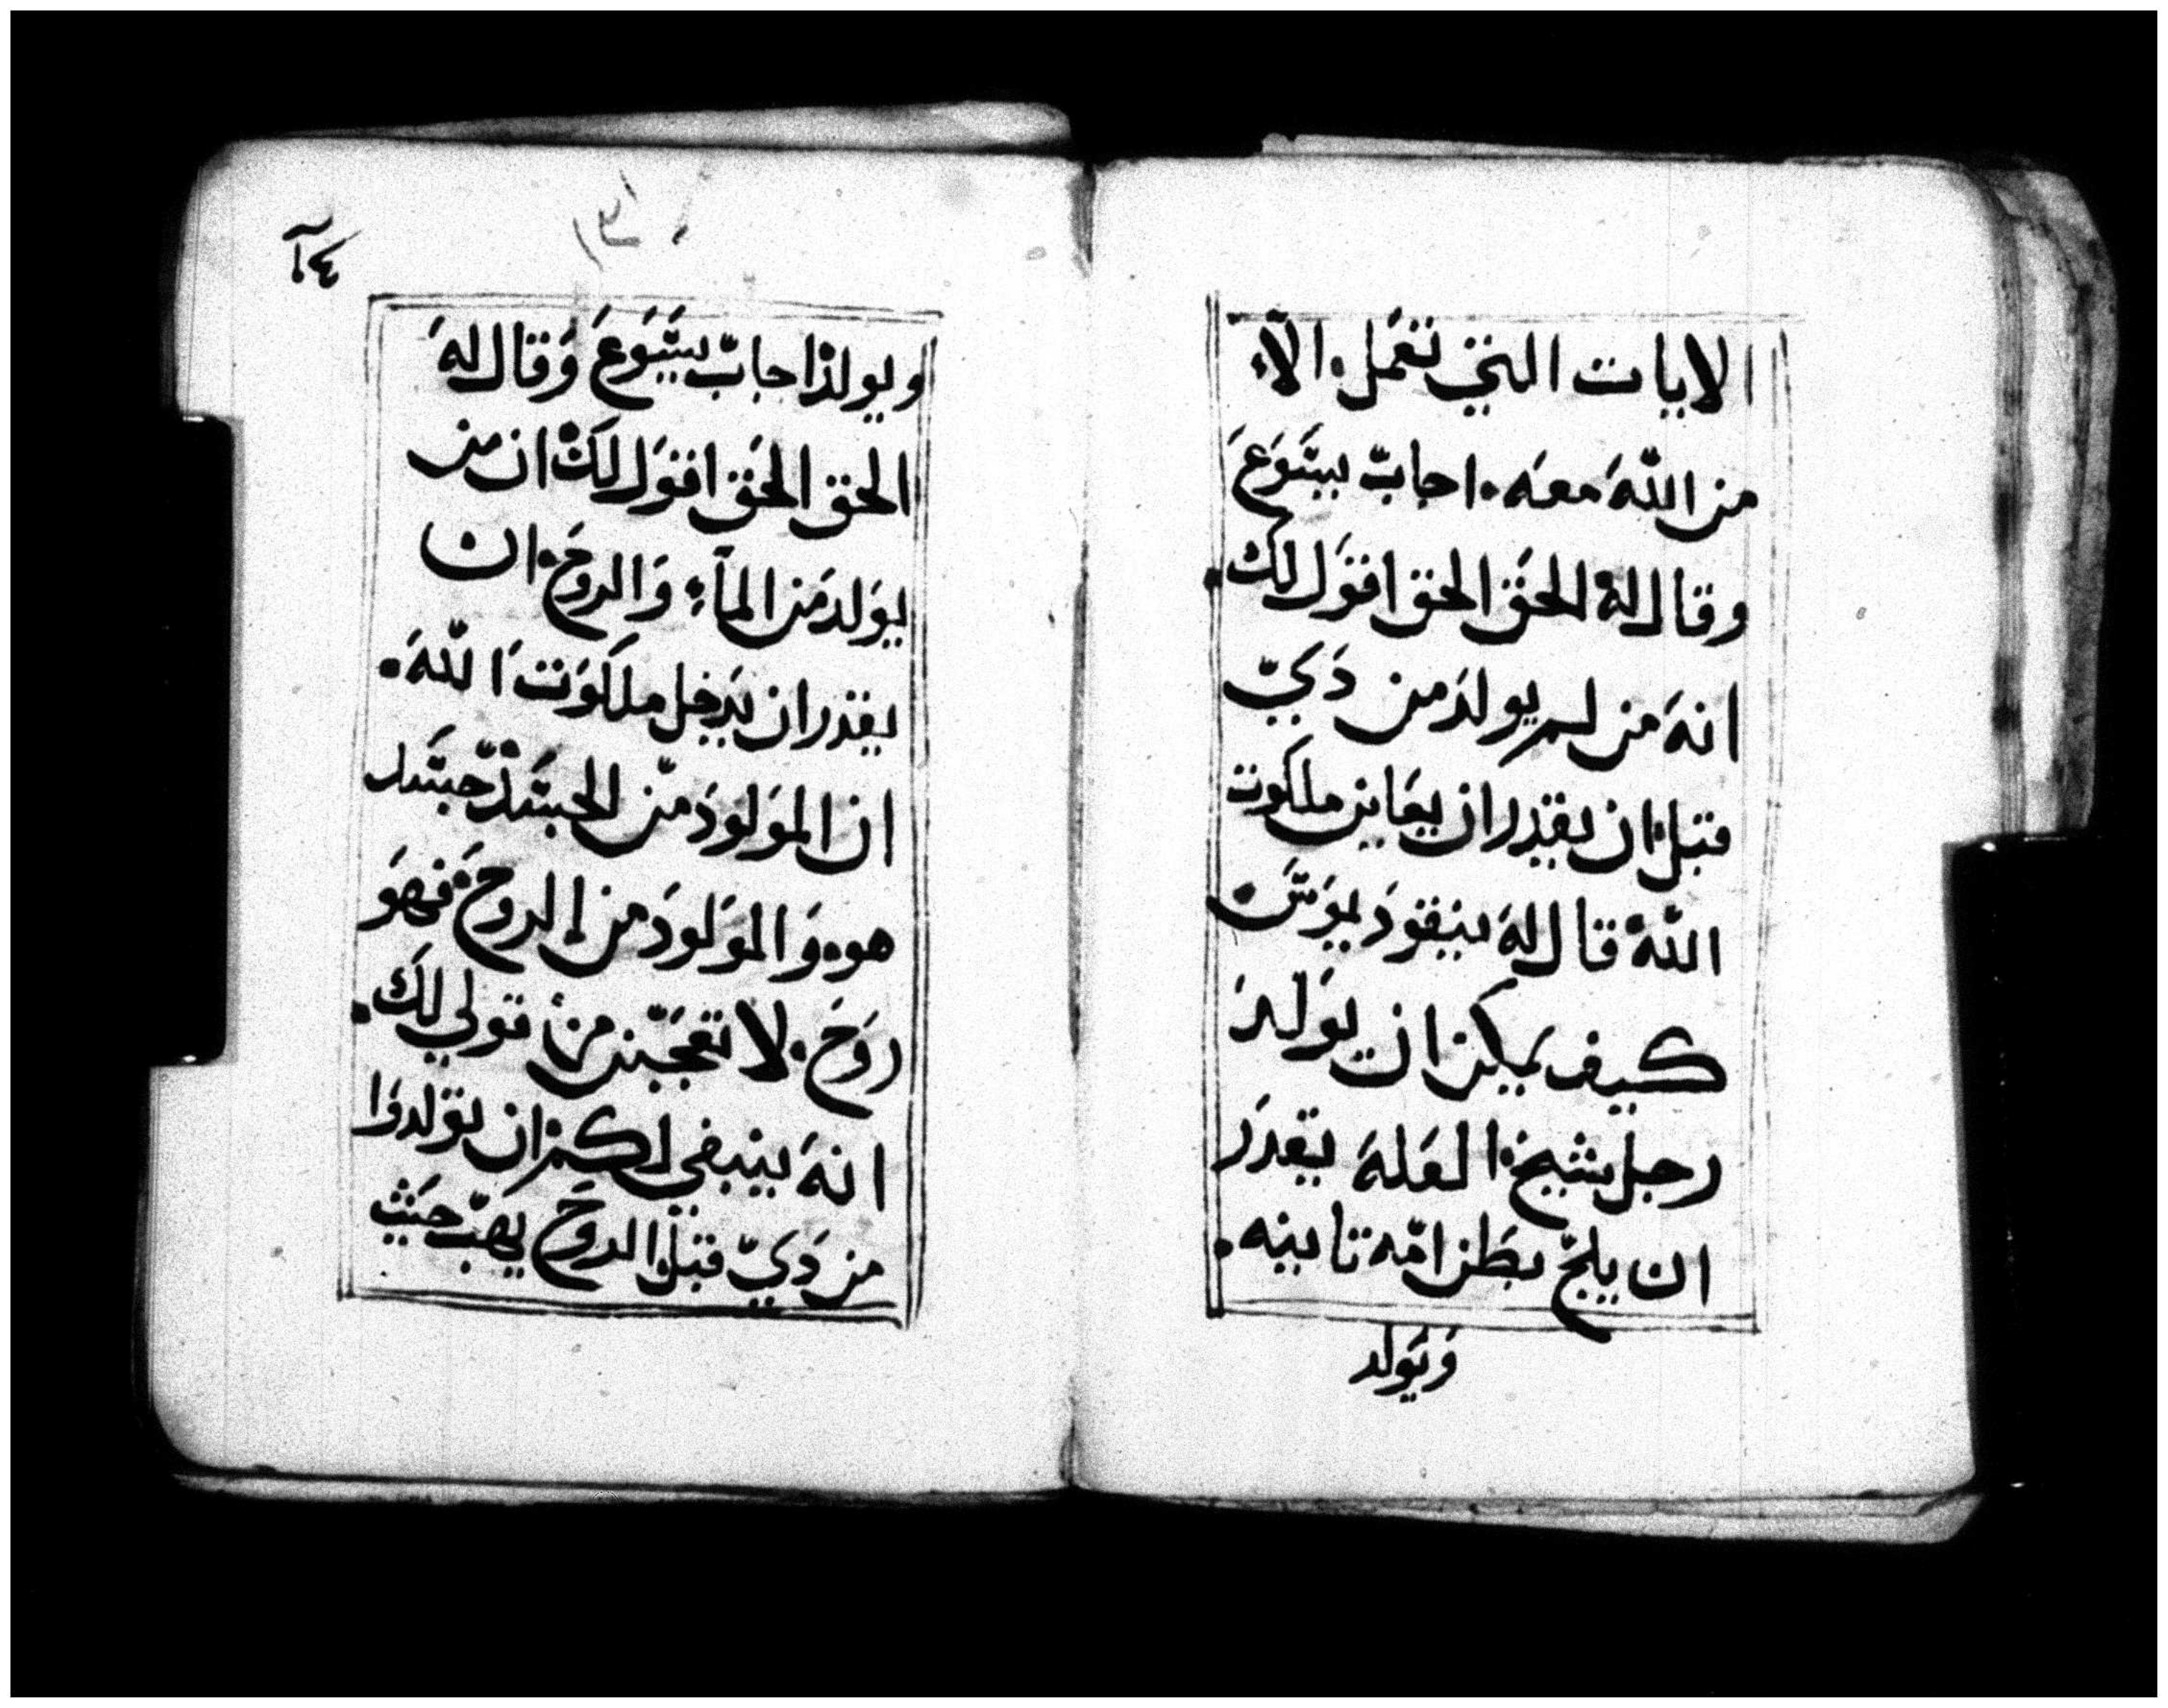 الايات التي تعمل. الا
من الله معه. اجاب يسوع
وقال له الحق الحق اقول لك.
انه من لم يولد من دي
قبل ان يقدر ان يعاين ملكوت
الله قال له نيقوديموس.
كيف يمكن ان يولد
رجل شيخ. العله يقدر
ان يلج بطن امه تانيه.
ويولد
ويولد اجاب يسوع وقال له
الحق الحق اقول لك ان من
يولد من الماء والروح. ان
يقدر ان يدخل ملكوت الله.
ان المولود من الجسد جسد
هو. والمولود من الروح. فهو
روح. لا تعجبن من قولي لك.
انه ينبغي لكم ان تولدوا
من دي قبل. الروح يهب حيث